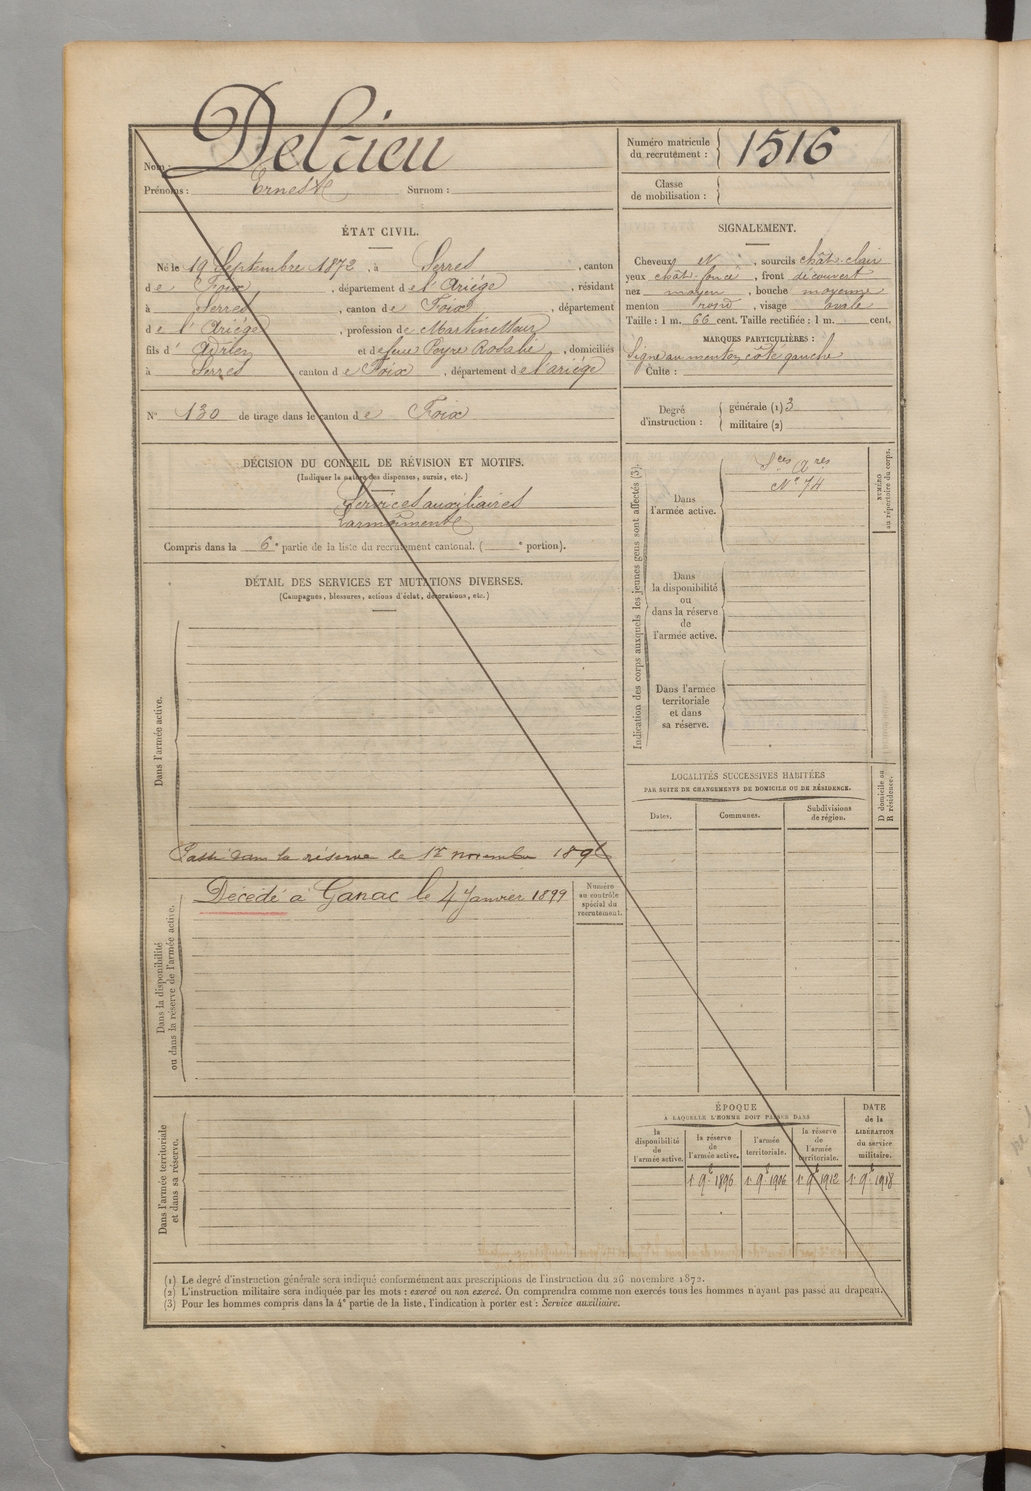 Nom : Delrieu
Prénoms : Ernest Surnom :
Numéro matricule du recrutement : 1516
Classe de mobilisation :
ÉTAT CIVIL.
Né le 19 Septembre 1872, à Serres, canton
de Foix, département de l'Ariége, résidant
à Serres, canton de Foix, département
de l'Ariége, profession de Martineteur
fils d' Adrien et de feue Peyre Rosalie, domiciliés
à Serres canton de Foix, département de l'ariége
N° 130 de tirage dans le canton de Foix
SIGNALEMENT.
Cheveux N, sourcils chât. clair
yeux chât. foncé, front découvert
nez moyen, bouche moyenne
menton rond, visage ovale
Taille : 1 m. 66 cent. Taille rectifiée : 1 m. cent.
MARQUES PARTICULIÈRES :
Signe au menton côté gauche
Culte :
Degré d'instruction : générale (1) 3
militaire (2)
DÉCISION DU CONSEIL DE RÉVISION ET MOTIFS.
(Indiquer la nature des dispenses, sursis, etc.)
Services auxiliaires
Larmoiement
Compris dans la 6e partie de la liste du recrutement cantonal. ( e portion).
DÉTAIL DES SERVICES ET MUTATIONS DIVERSES.
(Campagnes, blessures, actions d'éclat, décorations, etc.)
Dans l'armée active.
Passé dans la réserve le 1er novembre 1896
Dans la disponibilité
ou dans la réserve de l'armée active.
Décédé à Ganac le 4 Janvier 1899
Numéro
au contrôle
spécial du
recrutement.
Dans l'armée territoriale
et dans sa réserve.
Indication des corps auxquels les jeunes gens sont affectés (3).
NUMÉRO
au répertoire du corps.
Dans
l'armée active.
Sces Ares
N° 74
Dans
la disponibilité
ou
dans la réserve
de
l'armée active.
Dans l'armée
territoriale
et dans
sa réserve.
LOCALITÉS SUCCESSIVES HABITÉES
PAR SUITE DE CHANGEMENTS DE DOMICILE OU DE RÉSIDENCE.
Dates.
Communes.
Subdivisions
de région.
D domicile ou
R résidence.
ÉPOQUE
A LAQUELLE L'HOMME DOIT PASSER DANS
la
disponibilité
de
l'armée active.
la réserve
de
l'armée active.
l'armée
territoriale.
la réserve
de
l'armée
territoriale.
DATE
de la
LIBÉRATION
du service
militaire.
1er 9b 1896 1er 9b 1906 1er 9b 1912 1er 9b 1918
(1) Le degré d'instruction générale sera indiqué conformément aux prescriptions de l'instruction du 26 novembre 1872.
(2) L'instruction militaire sera indiquée par les mots : exercé ou non exercé. On comprendra comme non exercés tous les hommes n'ayant pas passé au drapeau.
(3) Pour les hommes compris dans la 4e partie de la liste, l'indication à porter est : Service auxiliaire.